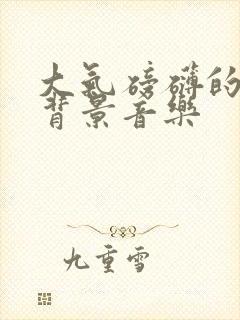 大气磅礴的
背景音乐
九重雪